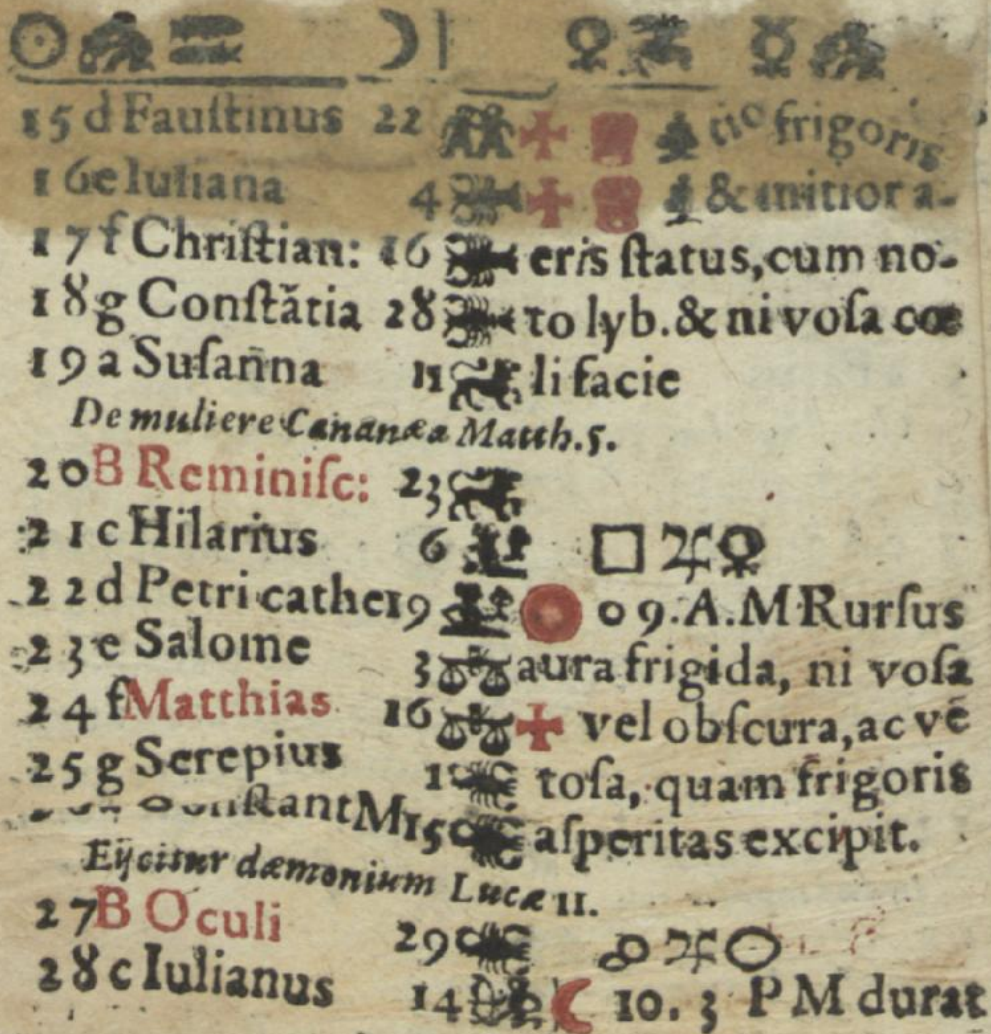 ☉ ♒ ☽ ♀ ☿
15 d Fauſtinus 22 tio frigoris
16 e Iuliana 4 & mitior a-
17 f Chriſtian: 16 eris ſtatus, cum no-
18 g Conſtãtia 28 to lyb. & nivoſa cœ
19 a Suſan̄na 11 li facie
De muliere Cananæa Matth. 5.
20 B Reminiſc: 23
21 c Hilarius 6 □ ♃ ♀
22 d Petri cathe 19 0 9. A. M Rurſus
23 e Salome 3 aura frigida, nivoſa
24 f Matthias 16 vel obſcura, ac vē
25 g Serepius 1 toſa, quam frigoris
ſtant M 15 aſperitas excipit.
Eijcitur dæmonium Lucæ 11.
27 B Oculi 29 ☍ ♃
28 c Iulianus 14 ☾ 10. 3 P M durat